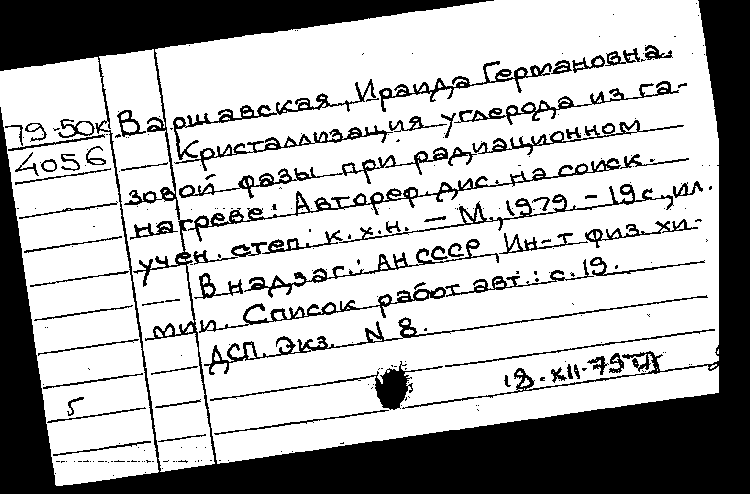 79-50к Варшавская, Ираида Германовна.
4056 Кристаллизация углерода из га-
зовой фазы при радиационном
нагреве: Автореф. дис. на соиск.
учен. степ. к.х.н. — М., 1979. – 19 с., ил.
В надзаг.: АН СССР, Ин-т физ. хи-
мии. Список работ авт.: с. 19.
ДСП. Экз. N 8.
5